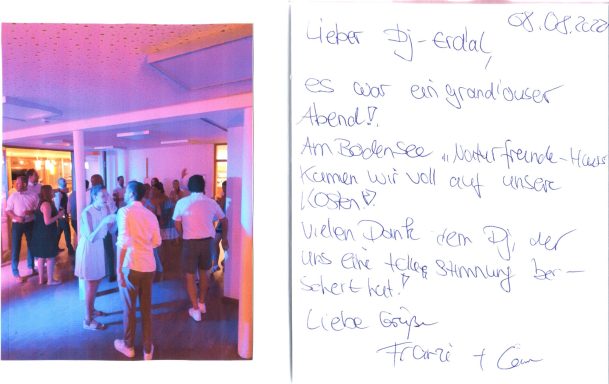 08.08.2020
Lieber Dj-Erdal,
es war ein grandiouser
Abend!
Am Bodensee "Naturfreunde-Haus
kamen wir voll auf unsere
Kosten!
Vielen Dank dem Dj, der
uns eine tolle Stimmung be-
schert hat!
Liebe Grüße
Franzi +